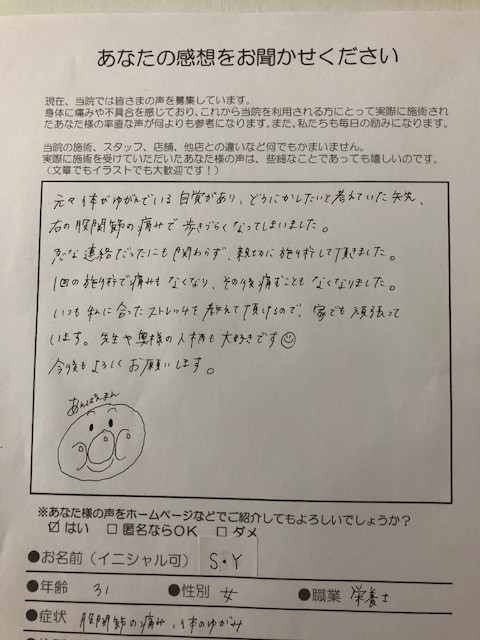 あなたの感想をお聞かせください
現在、当院では皆さまの声を募集しています。
身体に痛みや不具合を感じており、これから当院を利用される方にとって実際に施術され
たあなた様の率直な声が何よりも参考になります。また、私たちも毎日の励みになります。
当院の施術、スタッフ、店舗、他店との違いなど何でもかまいません。
実際に施術を受けていただいたあなた様の声は、些細なことであっても嬉しいのです。
(文章でもイラストでも大歓迎です!)
元々体がゆがんでいる自覚があり、どうにかしたいと考えていた矢先、
右の股関節の痛みで歩きづらくなってしまいました。
急な連絡だったにも関わらず、親切に施術して頂きました。
1回の施術で痛みもなくなり、その後痛むこともなくなりました。
いつも私に合ったストレッチを教えて頂けるので、家でも頑張って
います。先生や奥様の人柄も大好きです☺
今後もよろしくお願いします。
あんぱんまん
※あなた様の声をホームページなどでご紹介してもよろしいでしょうか?
☑ はい □ 匿名ならOK □ ダメ
●お名前(イニシャル可) S・Y
●年齢 31 ●性別 女 ●職業 栄養士
●症状 股関節の痛み、体のゆがみ